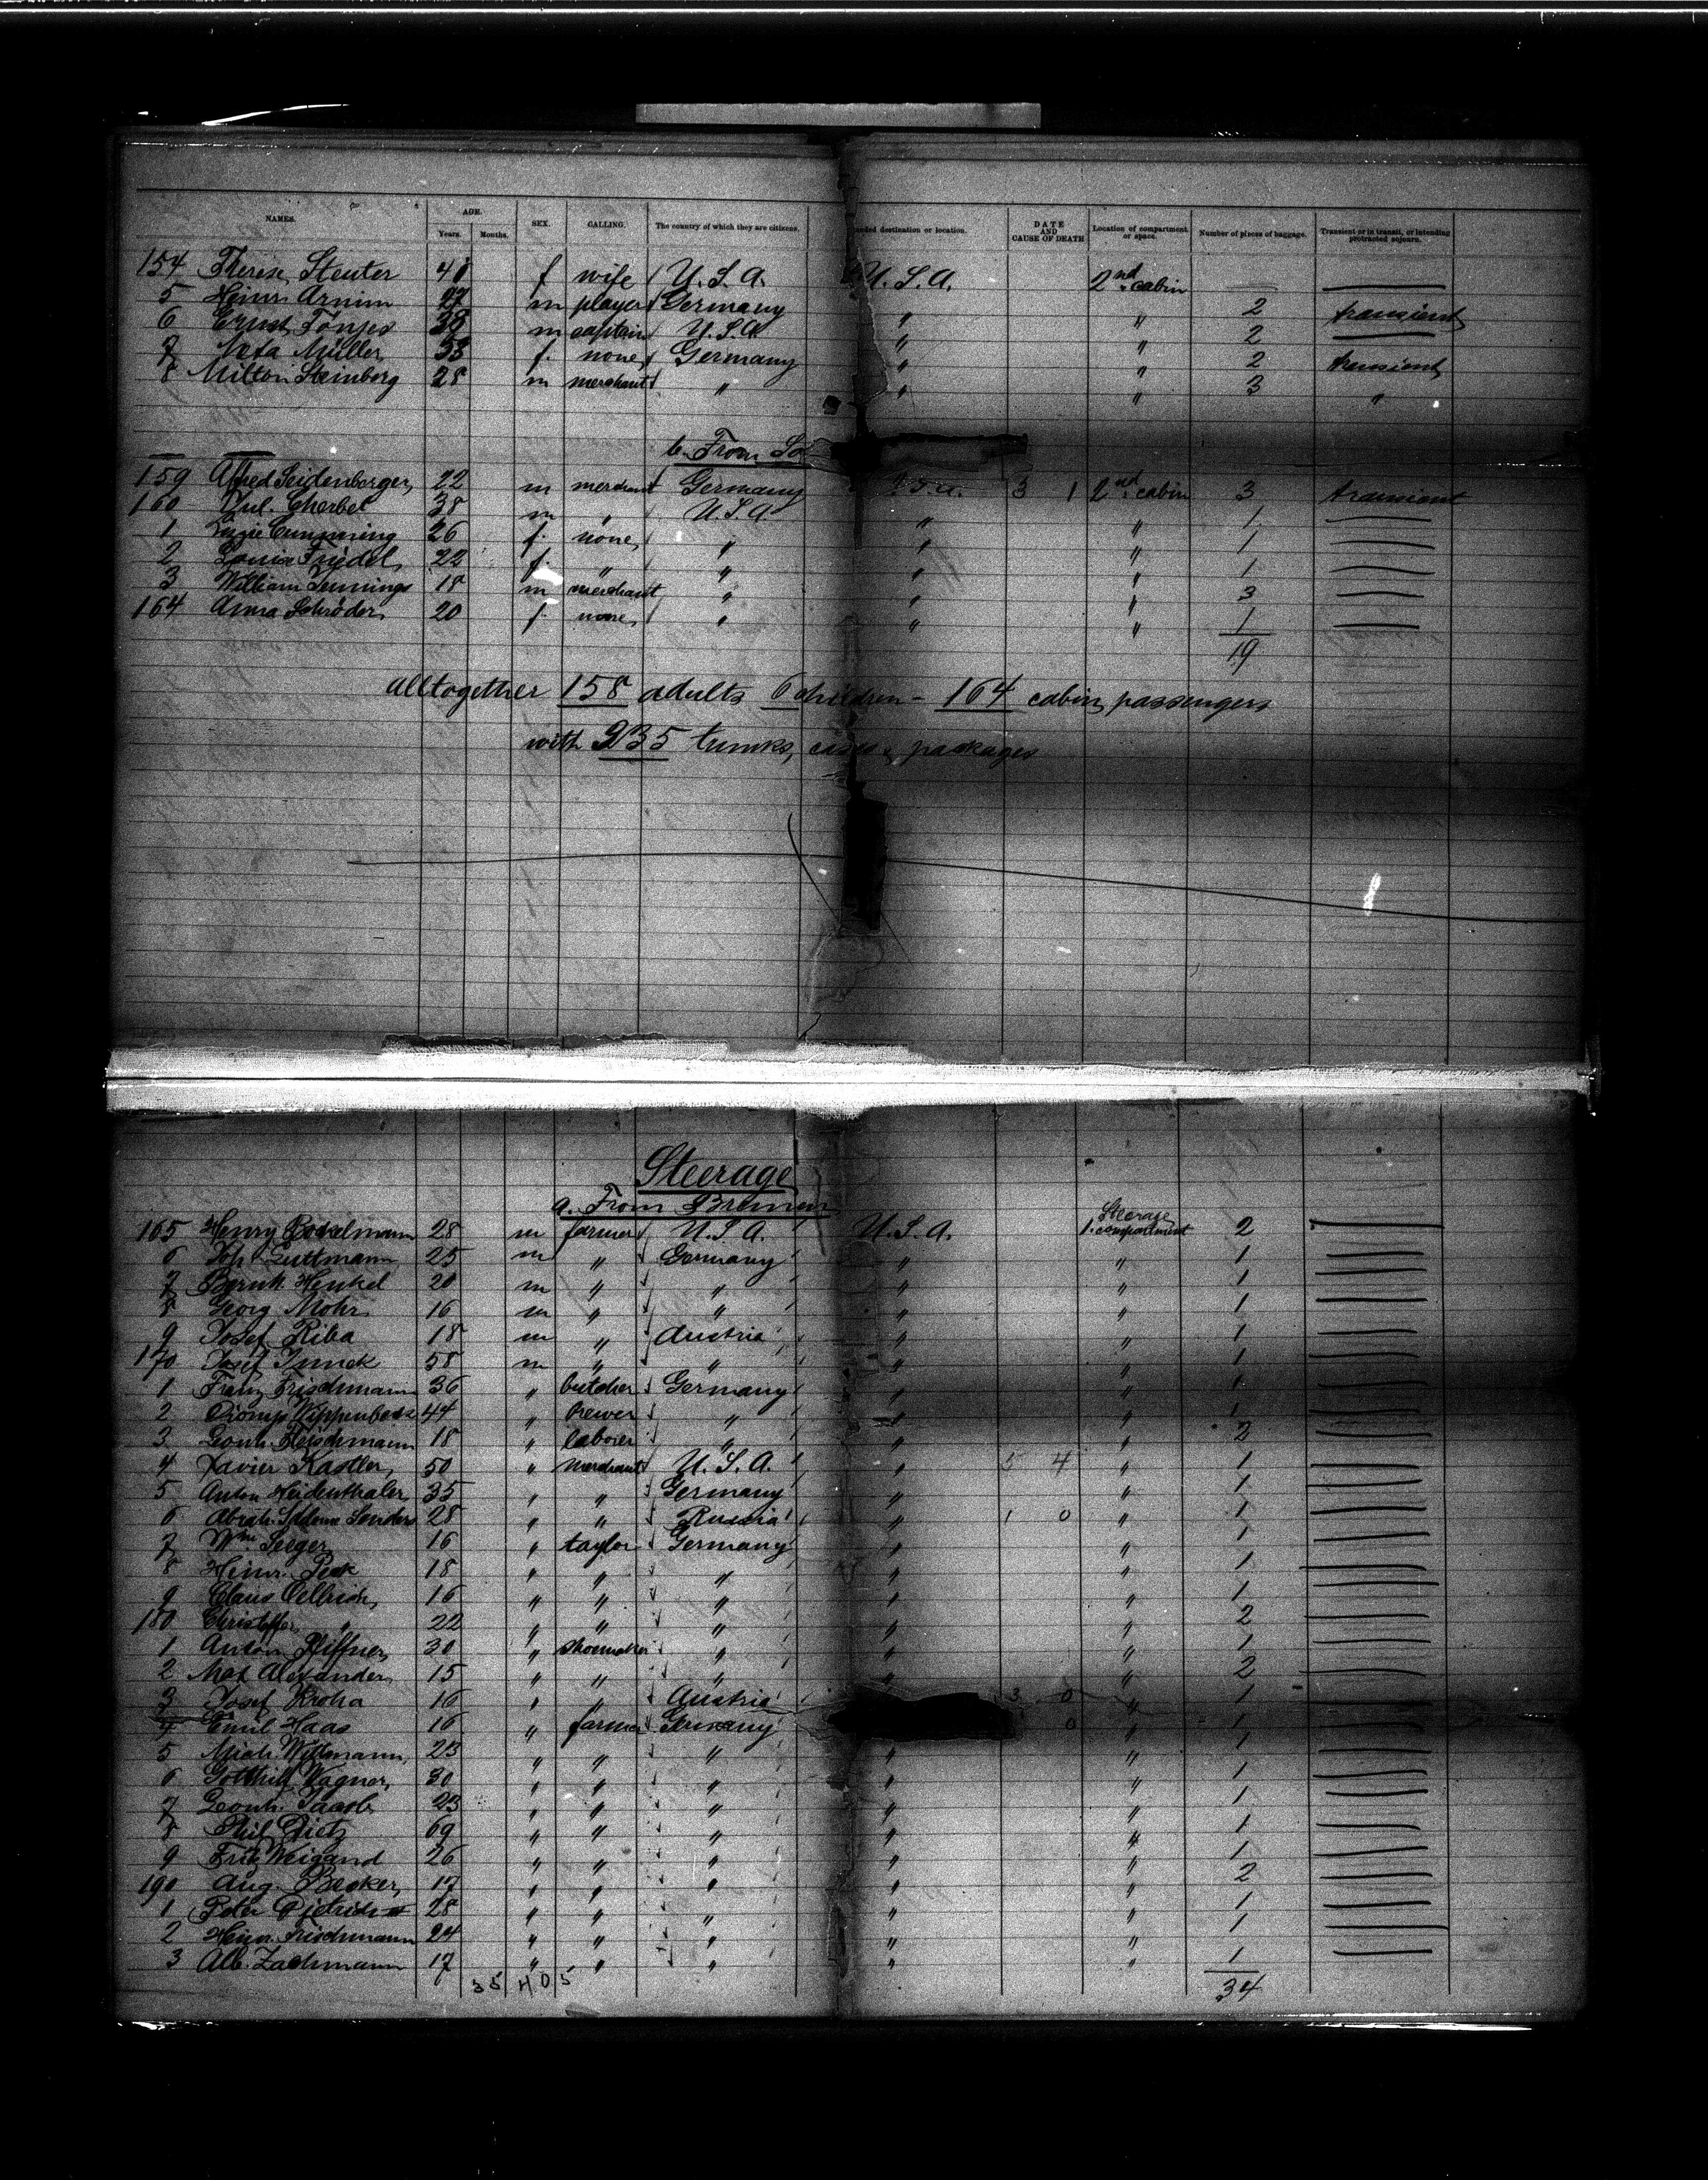 NAMES. AGE. Years. Months. SEX. CALLING. The country of which they are citizens. ended destination or location. DATE AND CAUSE OF DEATH Location of compartment or space. Number of pieces of baggage. Transient or in transit, or intending protracted sojourn.
154 Therese Steuter 40 f wife U.S.A. U.S.A. 2nd cabin
5 Heinr. Arnim 27 m player Germany " " 2 transient
6 Ernst Tönjes 38 m captain U.S.A. " " 2
7 Meta Müller 53 f. none Germany " " 2 transient
8 Milton Steinberg 28 m merchant " " " 3 "
b. From So
159 Alfred Seidenberger 22 m merchant Germany U.S.A. 3 1 2nd cabin 3 transient
160 Jul. Cherbet 38 m " U.S.A. " " 1
1 Cumming 26 f. none " " " 1
2 Louise Friedel 22 f. " " " " 1
3 William Jennings 18 m merchant " " " 3
164 Anna Schröder 20 f. none " " " 1
19
alltogether 158 adults 6 children - 164 cabin passengers
with 235 trunks, cases & packages
Steerage
a. From Bremen
165 Henry Bockelmann 28 m farmer U.S.A. U.S.A. Steerage 1. compartment 2
6 Joh. Guttmann 25 m " Germany " " 1
7 Bernh. Henkel 20 m " " " " 1
8 Georg Mohr 16 m " " " " 1
9 Josef Riba 18 m " Austria " " 1
170 Josef 58 m " " " " 1
1 Franz Frischmann 36 " butcher Germany " " 1
2 Wippenbeck 44 " brewer " " " 1
3 Leonh. Fleischmann 18 " laborer " " " 2
4 Xavier Kastler 50 " merchant U.S.A. " 5 4 " 1
5 Anton Heidenthaler 35 " " Germany " " 1
6 Abrah. Senders 28 " " Russia " 1 0 " 1
7 Wm Seeger 16 " taylor Germany " " 1
8 Heinr. Peck 18 " " " " " 1
9 Claus Oellrich 16 " " " " " 1
180 Christoffer " 22 " " " " " 2
1 Anton Pfiffner 30 " shoemaker " " " 1
2 Max Alexander 15 " " " " " 2
3 Josef Kroha 16 " " Austria 3 0 " 1
4 Emil Haas 16 " farmer Germany 0 " 1
5 Mich. Wittmann 23 " " " " " 1
6 Gotthilf Wagner 30 " " " " " 1
7 Leonh. Jacob 23 " " " " " 1
8 Phil. Dietz 69 " " " " " 1
9 Fritz Weigand 26 " " " " " 1
190 Aug. Becker 17 " " " " " 2
1 Peter Dietrich 28 " " " " " 1
2 Heinr. Frischmann 24 " " " " " 1
3 Alb. Zachmann 17 " " " " " 1
35 405 34